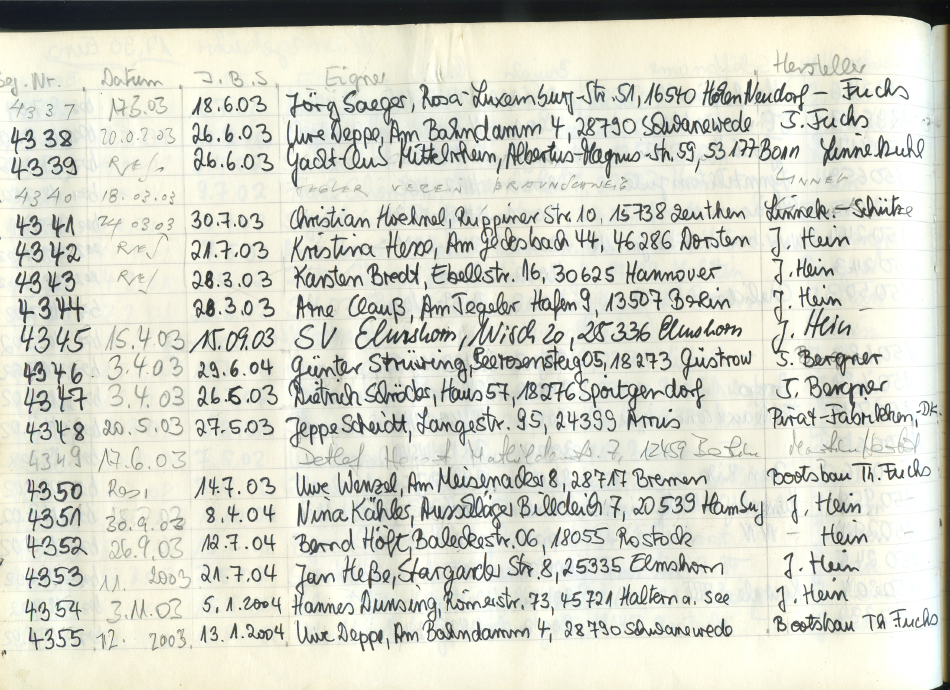 Seg. Nr. Datum J.B.S Eigner Hersteller
4337 17.3.03 18.6.03 Jörg Saeger, Rosa-Luxemburg-Str. 51, 16540 Hohen Neudorf - Fuchs
4338 20.0.2.03 26.6.03 Uwe Deppe, Am Bahndamm 4, 28790 Schwanewede J. Fuchs
4339 Res. 26.6.03 Yacht-Club Mittelrhein, Albertus-Magnus-Str. 59, 53177 Bonn Linnekuhl
4340 18.03.03 SEGLER VEREIN BRAUNSCHWEIG LINNEK
4341 24.03.03 30.7.03 Christian Hoehnel, Ruppiner Str. 10, 15738 Zeuthen Linnek.-Schütze
4342 Res 21.7.03 Kristina Hesse, Am Gecksbach 44, 46286 Dorsten J. Hein
4343 Res 28.3.03 Karsten Bredt, Ebellstr. 16, 30625 Hannover J. Hein
4344 28.3.03 Arne Clauß, Am Tegeler Hafen 9, 13507 Berlin J. Hein
4345 15.4.03 15.09.03 SV Elmshorn, Wisch 20, 25336 Elmshorn J. Hein
4346 3.4.03 29.6.04 Günter Strüwing, Seerosensteig 05, 18273 Güstrow S. Bergner
4347 3.4.03 26.5.03 Dietrich Schröder, Haus 57, 18276 Sportgendorf S. Bergner
4348 20.5.03 27.5.03 Jeppe Scheidt, Langestr. 95, 24399 Arnis Pirat-Fabrikken, -DK.
4349 17.6.03 Detlef 7, 12459 Berlin
4350 Res. 14.7.03 Uwe Wenzel, Am Meisenacker 8, 28717 Bremen Bootsbau Th. Fuchs
4351 30.9.03 8.4.04 Nina Kähler, Ausschläger Billdeich 7, 20539 Hamburg J. Hein
4352 26.9.03 12.7.04 Bernd Höft, Baleckestr. 06, 18055 Rostock - Hein -
4353 11. 2003 21.7.04 Jan Heße, Stargarder Str. 8, 25335 Elmshorn J. Hein
4354 3.11.03 5.1.2004 Hannes Dunsing, Römerstr. 73, 45721 Haltern a. see J. Hein
4355 12. 2003 13.1.2004 Uwe Deppe, Am Bahndamm 4, 28790 Schwanewede Bootsbau Th Fuchs